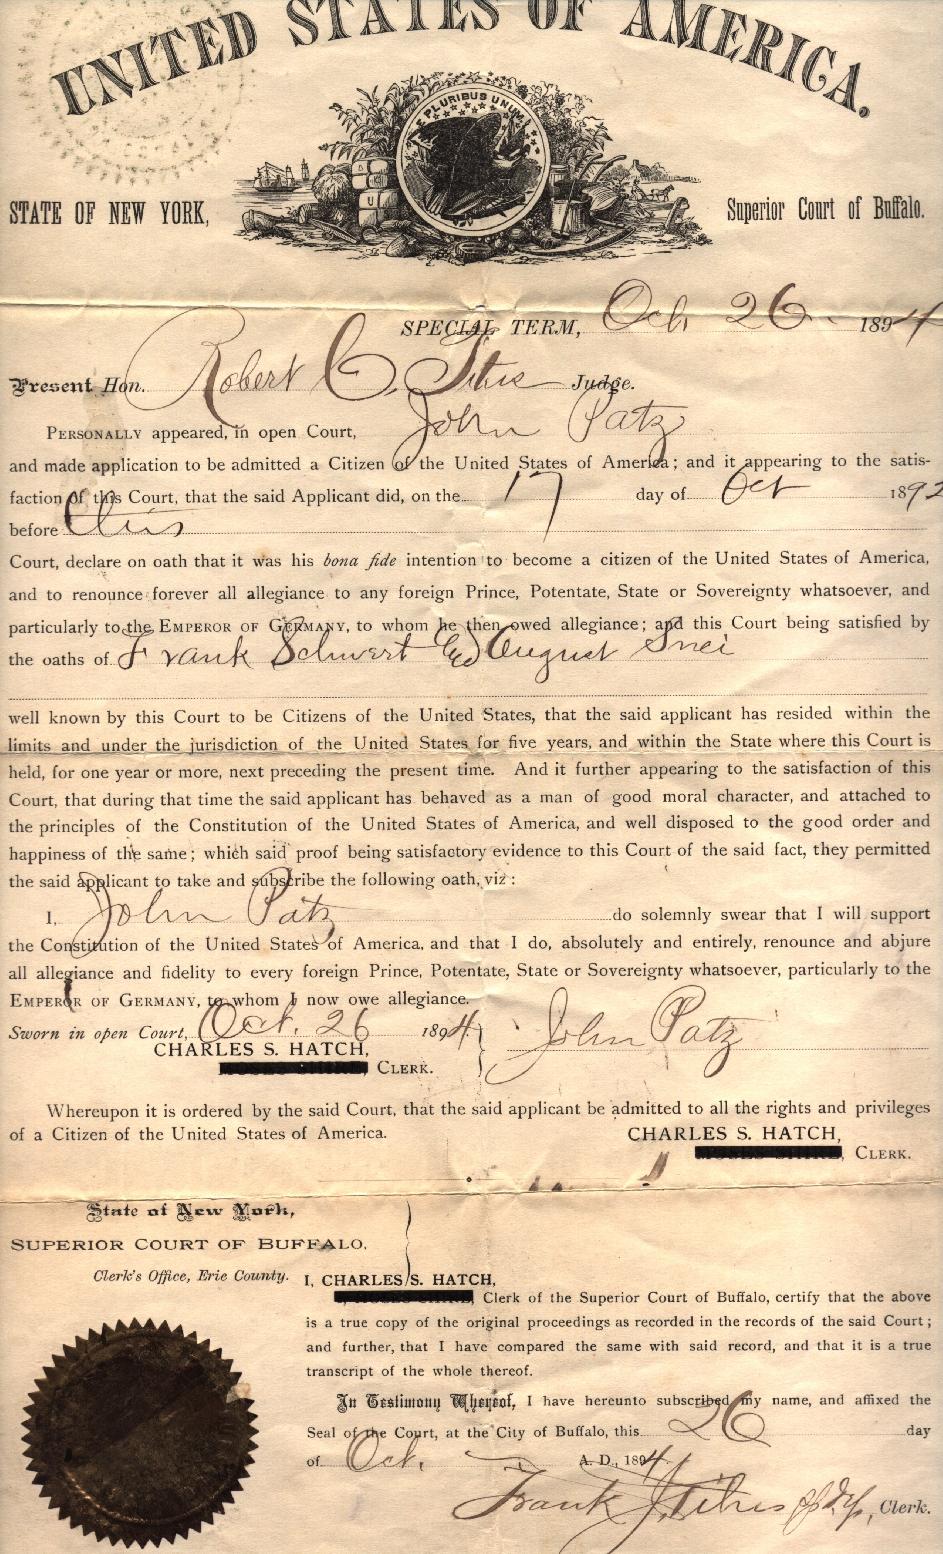 UNITED STATES OF AMERICA.
E PLURIBUS UNUM
STATE OF NEW YORK,
Superior Court of Buffalo.
SPECIAL TERM, Oct. 26 1894
Present Hon. Robert C. Titus Judge.
PERSONALLY appeared, in open Court, John Patz
and made application to be admitted a Citizen of the United States of America; and it appearing to the satis-
faction of this Court, that the said Applicant did, on the 17 day of Oct 1892
before this
Court, declare on oath that it was his bona fide intention to become a citizen of the United States of America,
and to renounce forever all allegiance to any foreign Prince, Potentate, State or Sovereignty whatsoever, and
particularly to the EMPEROR OF GERMANY, to whom he then owed allegiance; and this Court being satisfied by
the oaths of Frank Schwert August
well known by this Court to be Citizens of the United States, that the said applicant has resided within the
limits and under the jurisdiction of the United States for five years, and within the State where this Court is
held, for one year or more, next preceding the present time. And it further appearing to the satisfaction of this
Court, that during that time the said applicant has behaved as a man of good moral character, and attached to
the principles of the Constitution of the United States of America, and well disposed to the good order and
happiness of the same; which said proof being satisfactory evidence to this Court of the said fact, they permitted
the said applicant to take and subscribe the following oath, viz:
I, John Patz do solemnly swear that I will support
the Constitution of the United States of America, and that I do, absolutely and entirely, renounce and abjure
all allegiance and fidelity to every foreign Prince, Potentate, State or Sovereignty whatsoever, particularly to the
EMPEROR OF GERMANY, to whom I now owe allegiance.
Sworn in open Court, Oct. 26 1894 John Patz
CHARLES S. HATCH,
CLERK.
Whereupon it is ordered by the said Court, that the said applicant be admitted to all the rights and privileges
of a Citizen of the United States of America.
CHARLES S. HATCH,
CLERK.
State of New York,
SUPERIOR COURT OF BUFFALO,
Clerk's Office, Erie County.
I, CHARLES S. HATCH,
Clerk of the Superior Court of Buffalo, certify that the above
is a true copy of the original proceedings as recorded in the records of the said Court;
and further, that I have compared the same with said record, and that it is a true
transcript of the whole thereof.
In Testimony Whereof, I have hereunto subscribed my name, and affixed the
Seal of the Court, at the City of Buffalo, this 26 day
of Oct. A. D., 1894
Frank Clerk.